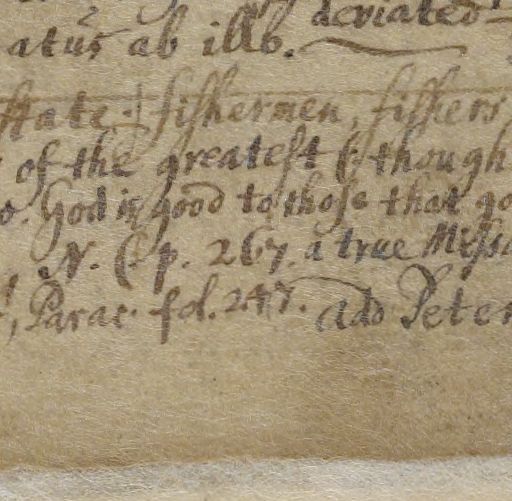 deviated
atus ab illo.
state: fishermen, fishers
of the greatest (though
o. God is good to those that go
N. ( p. 267. a true Messa
, Parac. fol. 247. Ado Peter